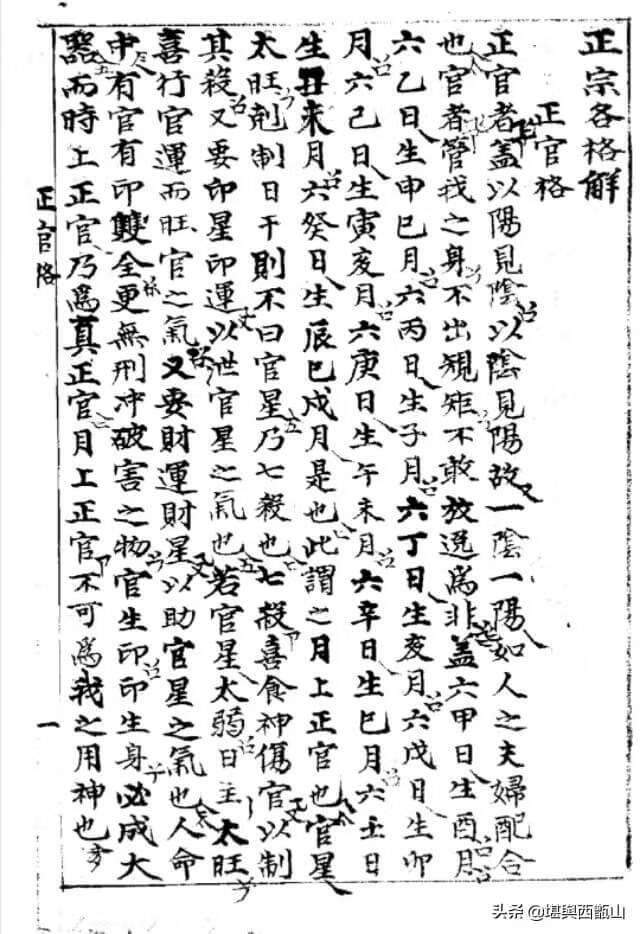 正宗各格觧
正官格
正官者盖以陽見陰以陰見陽故一陰一陽如人之夫婦配合
也官者管我之身不出規矩不敢放逸爲非盖六甲日生酉月
六乙日生申巳月六丙日生子月六丁日生亥月六戊日生卯
月六己日生寅亥月六庚日生午未月六辛日生巳月六壬日
生丑未月六癸日生辰巳戌月是也此謂之月上正官也官星
太旺剋制日干則不曰官星乃七殺也七殺喜食神傷官以制
其殺又要印星印運以泄官星之氣也若官星太弱日主太旺
喜行官運而旺官之氣又要財運財星以助官星之氣也人命
中有官有印雙全更無刑冲破害之物官生印印生身必成大
器而時上正官乃爲真正官月上正官不可爲我之用神也
正官格
一
头条 @堪舆西甑山